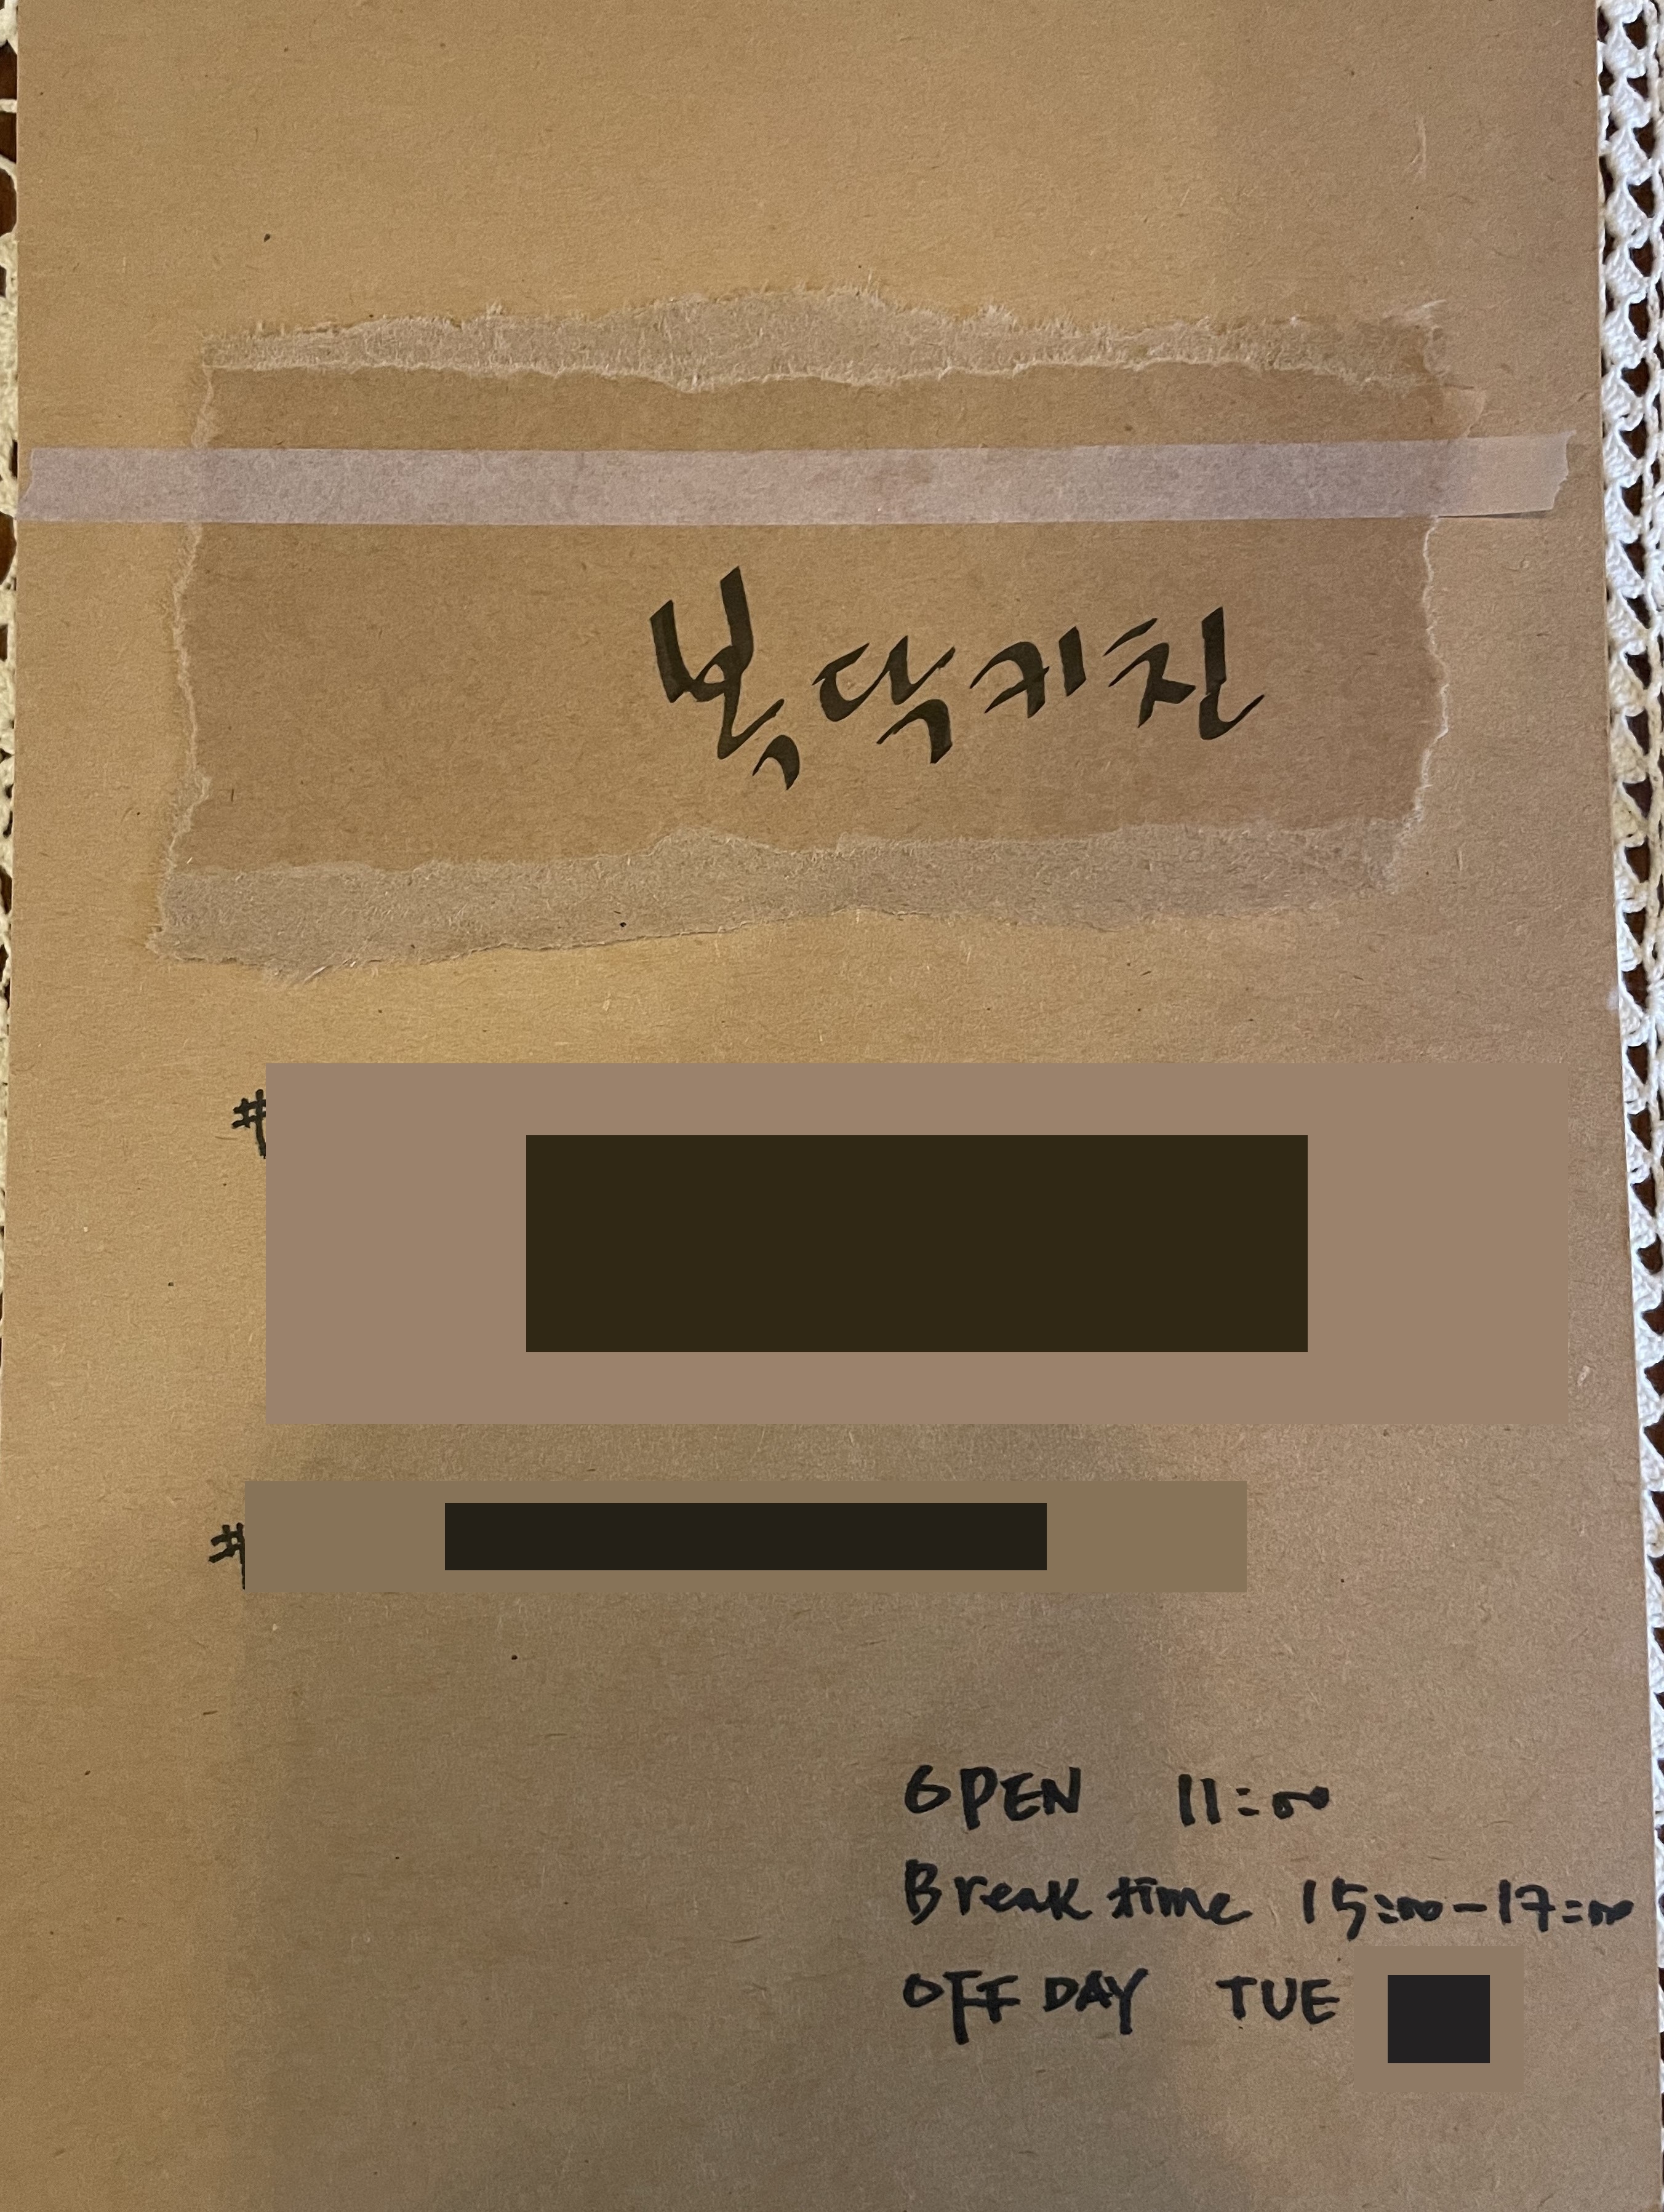 복닥키친
#
#
OPEN 11:00
Break time 15:00-17:00
OFF DAY TUE